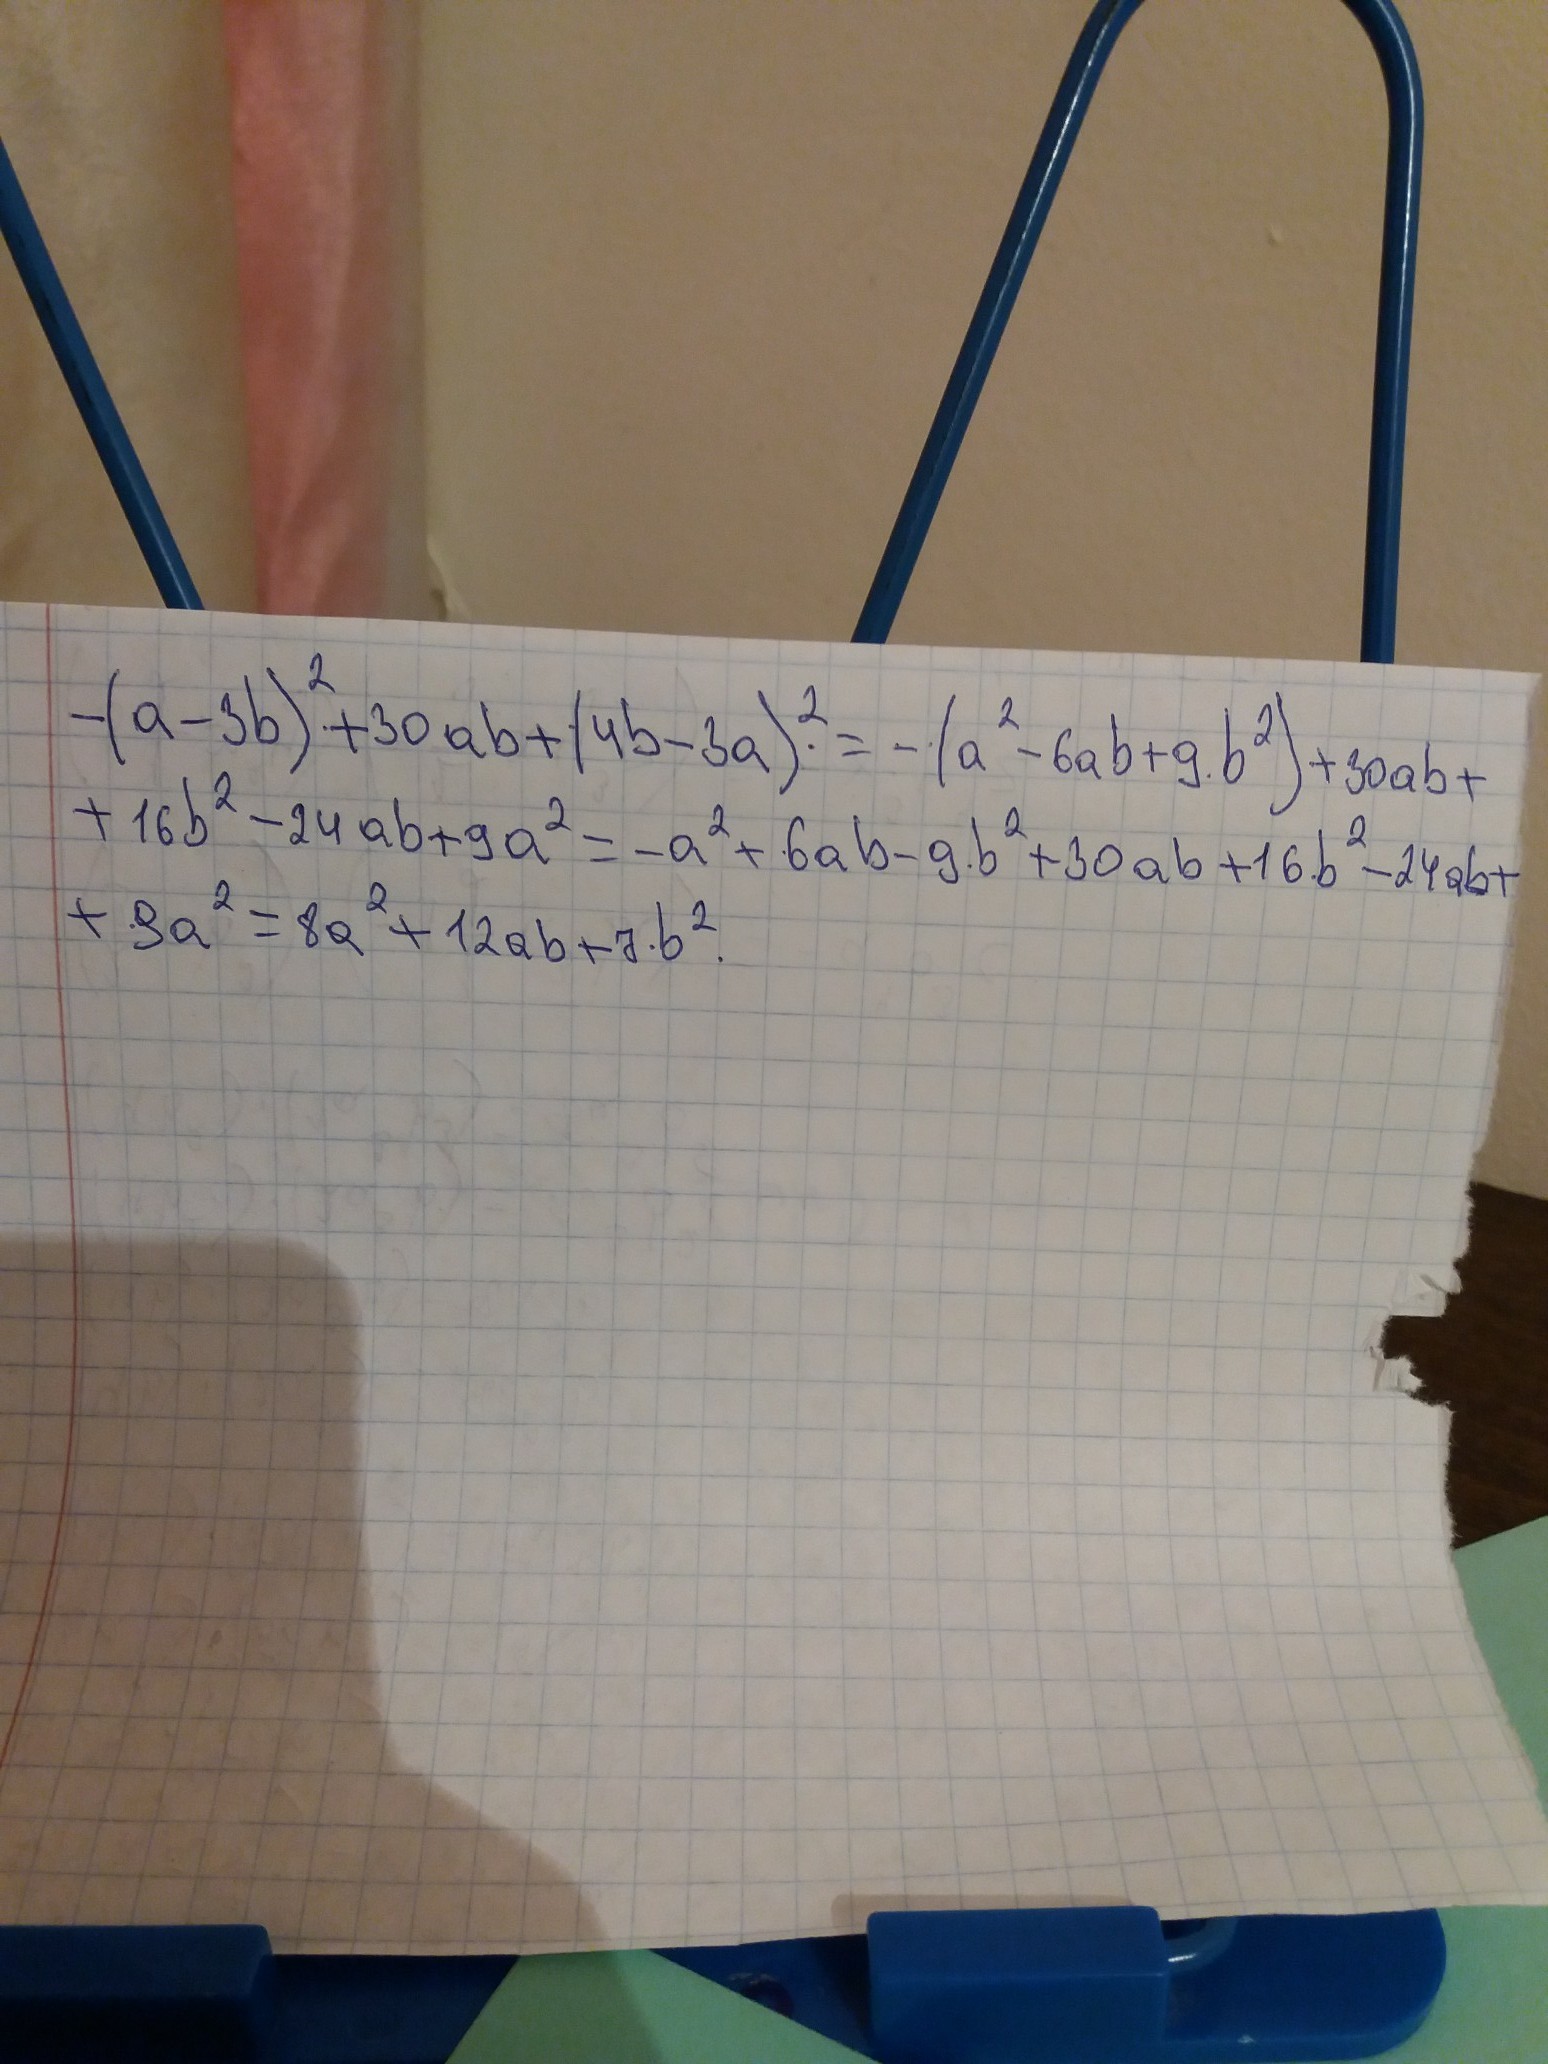 -(a-3b)²+30ab+(4b-3a)²=-(a²-6ab+9b²)+30ab+
+16b²-24ab+9a²=-a²+6ab-9b²+30ab+16b²-24ab+
+9a²=8a²+12ab+7b².